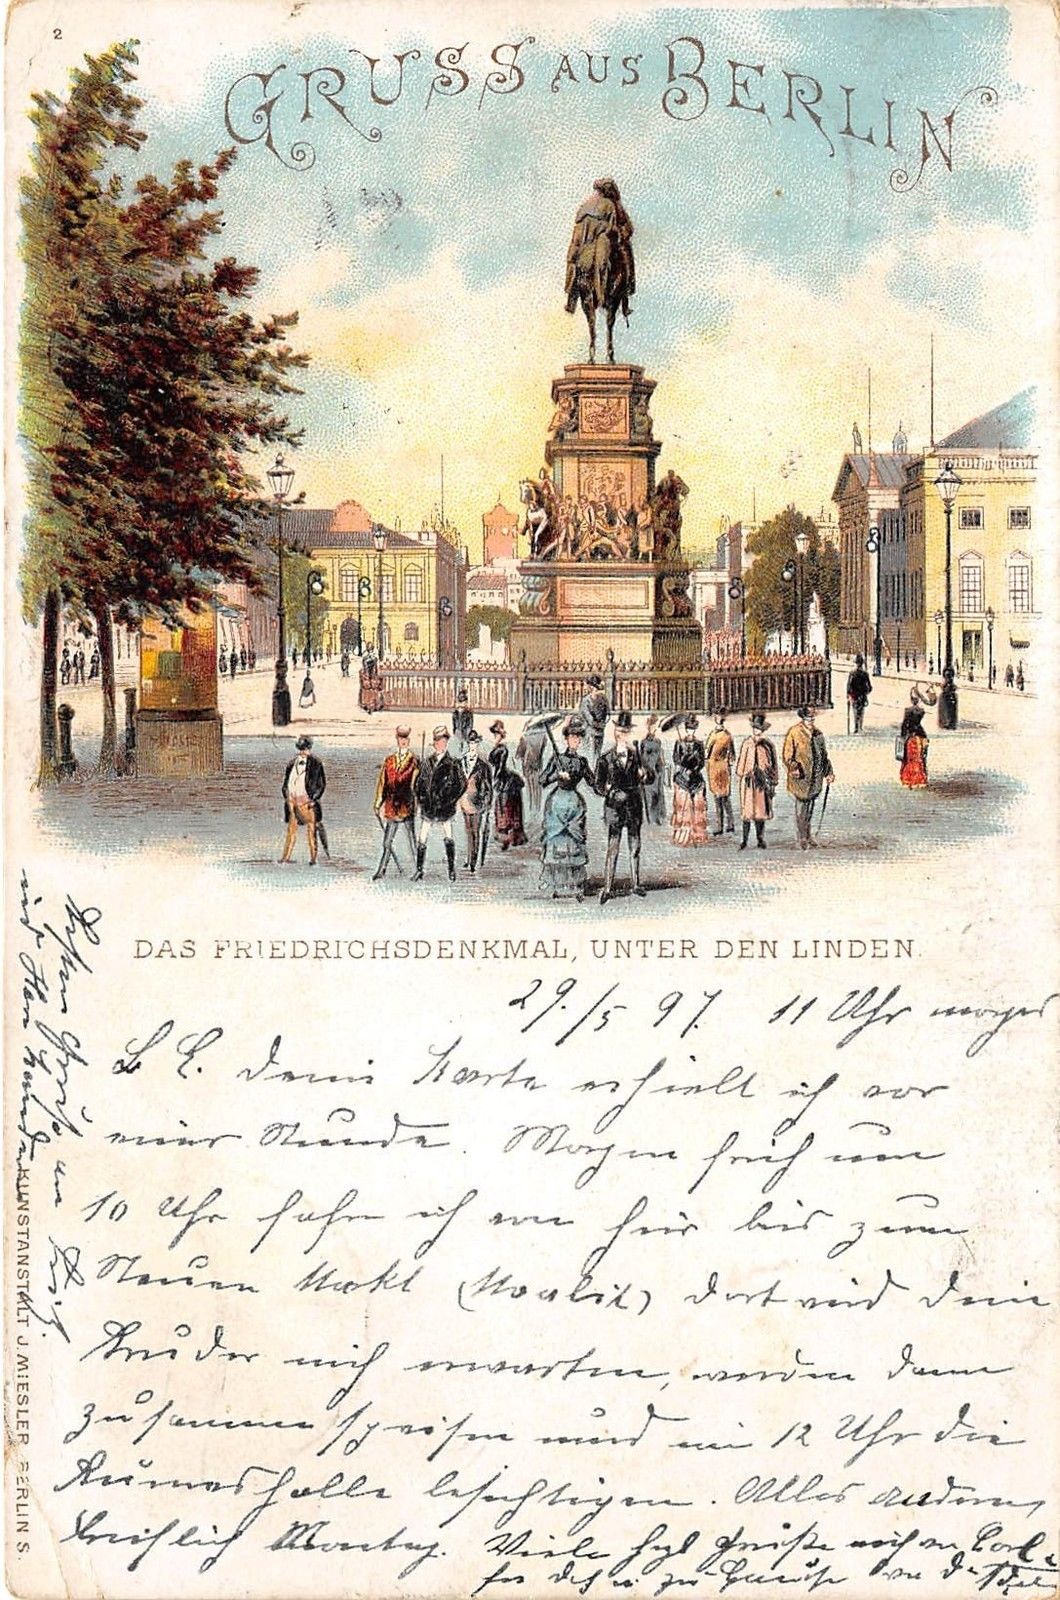 2
GRUSS AUS BERLIN
DAS FRIEDRICHSDENKMAL, UNTER DEN LINDEN.
29./5 97. 11 Uhr morgens
L. L. Deine Karte erhielt ich vor
einer Stunde. Morgen früh um
10 Uhr fahre ich von hier bis zum
Neuen Markt (Moabit) dort wird dein
Bruder mich erwarten, werden dann
zusammen speisen und um 12 Uhr die
Ruhmeshalle besichtigen. Alles andere
brieflich Montag. Viele hzl Grüße auch an
zu Hause von
Besten Gruß an
und Herr
KUNSTANSTALT J. MIESLER BERLIN S.